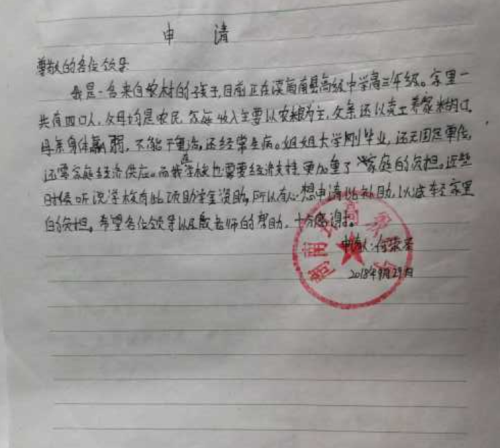 申 请
尊敬的各位领导
我是一名来自农村的孩子,目前正在滦南南县高级中学高三年级。家里一
共有四口人,父母均是农民,家庭收入主要以农粮为主,父亲还以卖工养家糊口,
母亲身体羸弱,不能干重活,还经常生病。姐姐大学刚毕业,还无固定单位,
还需家庭经济供应。而我在学校也需要经济支持更加重了家庭的负担。近些
时候听说学校有此项助学金资助,所以有心想申请此补助,以减轻家里
的负担。希望各位领导以及老师的帮助,十分感谢。
申请人:
2018年9月29日